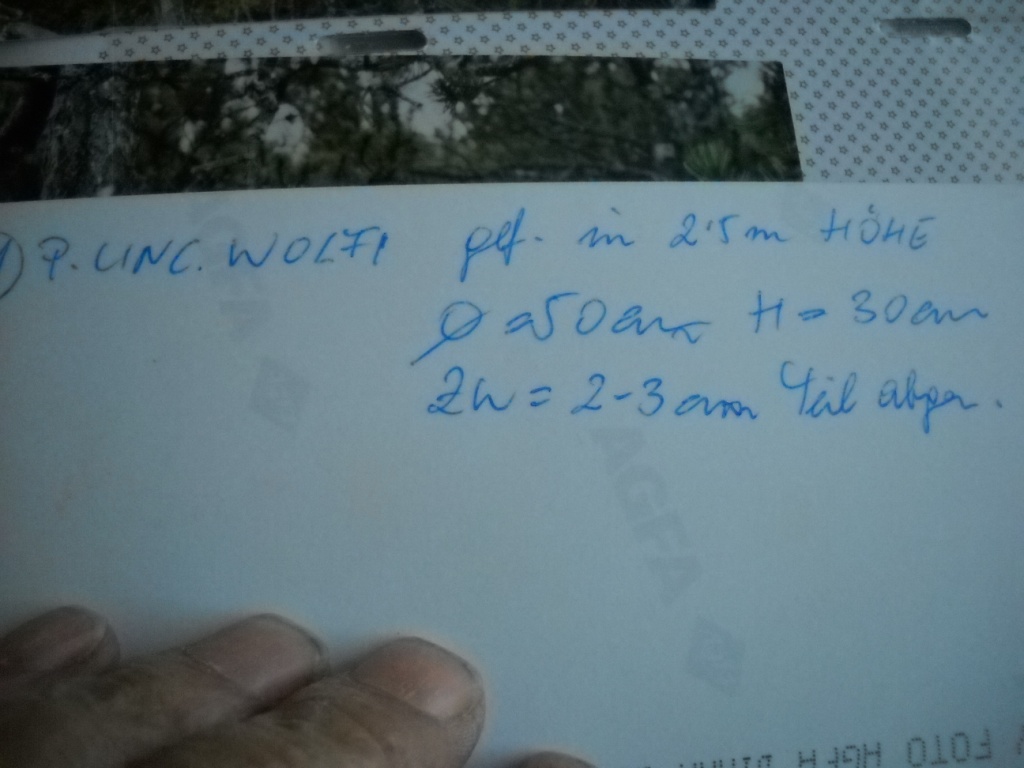 1) P. UNC. WOLFI gef. in 2'5 m HÖHE
Ø = 50 cm H = 30 cm
ZW = 2-3 cm Teil abgen.
AGFA
AGFA
FOTO AGFA